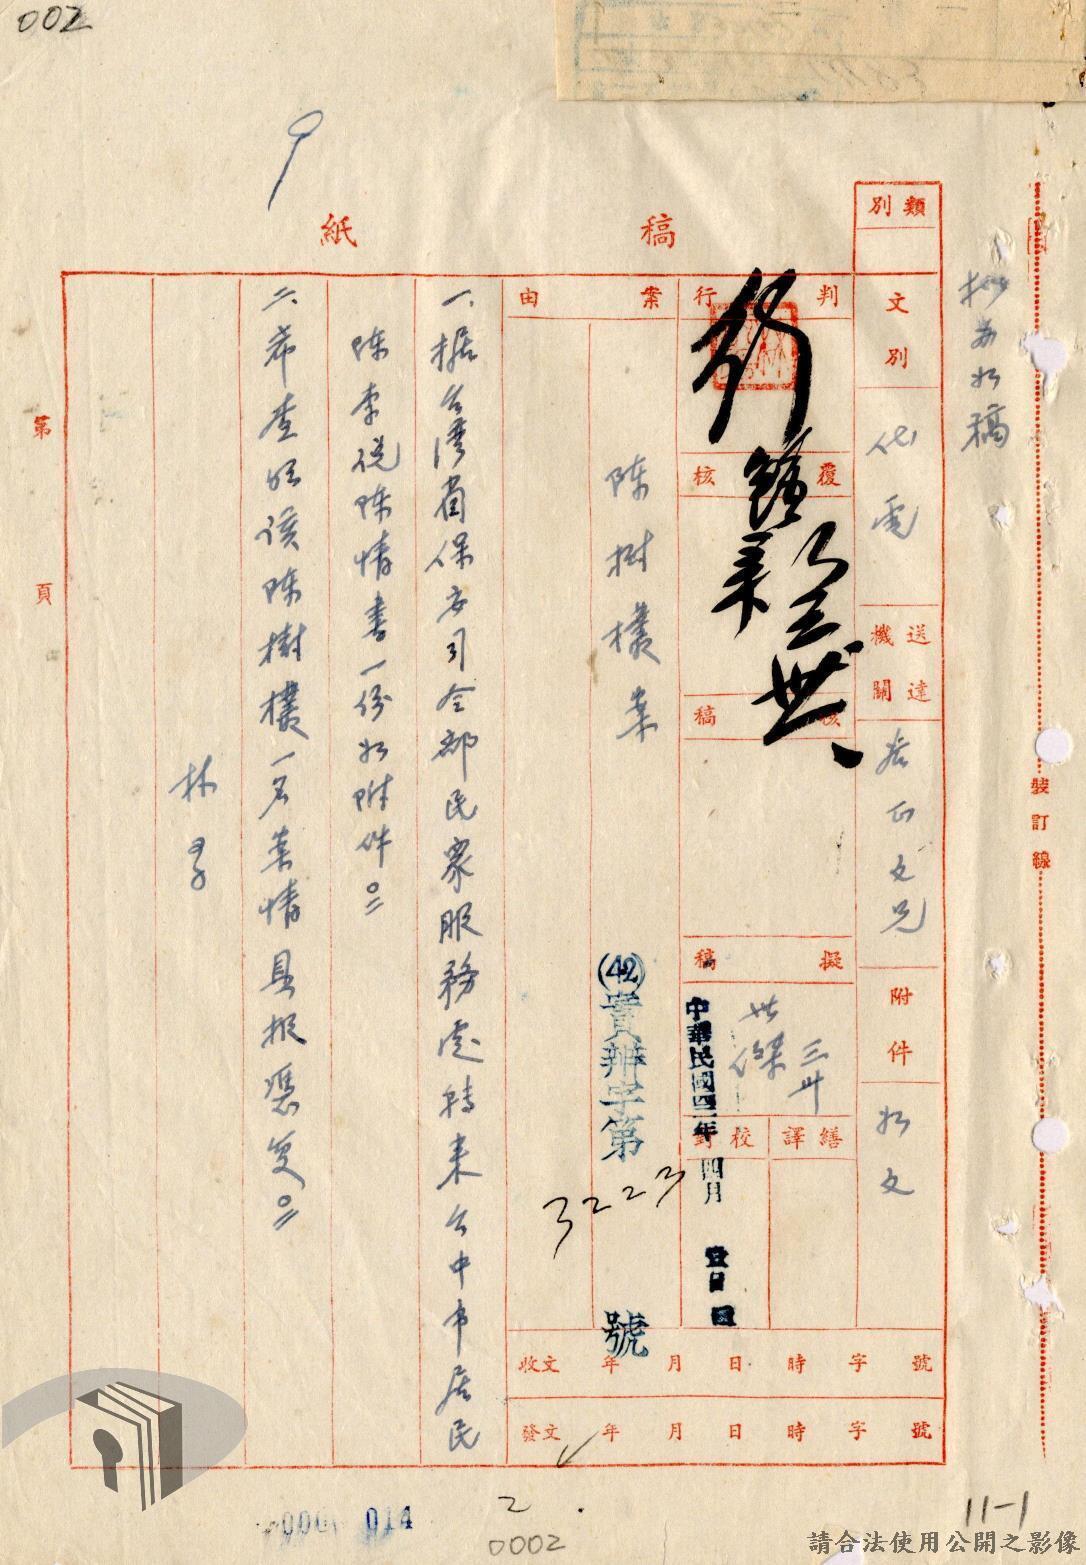 002
稿紙
類別
文別
代電
送達機關
附件
如文
判行
覆核
核稿
擬稿
世傑
繕譯
校對
中華民國四二年四月壹日
案由
陈樹樸案
(42)實辦字第3223號
收文 年 月 日 時 字 號
發文 年 月 日 時 字 號
一、據台灣省保安司令部民眾服務處轉来台中市居民
陈李悦陈情書一份如附件。
二、希查明该陈樹樸一名案情具报憑复。
林〇
第 頁
裝訂線
014
2
0002
11-1
請合法使用公開之影像